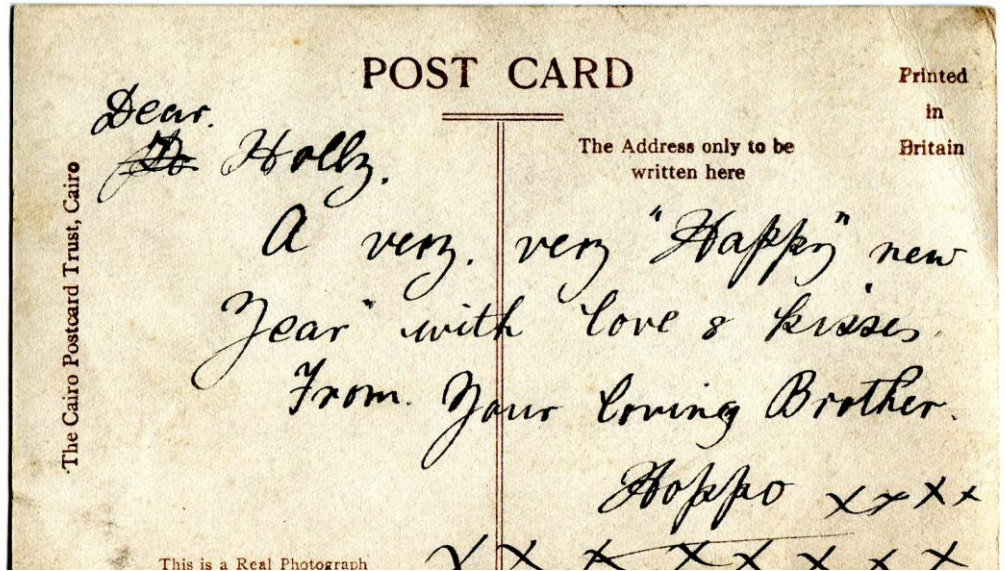 POST CARD
Printed
in
Britain
The Address only to be
written here
The Cairo Postcard Trust, Cairo
Dear.
Holly.
A very. very "Happy" new
Year" with love & kisses
From. Your loving Brother.
Hoppo x x x x
x x x x x x x x
This is a Real Photograph